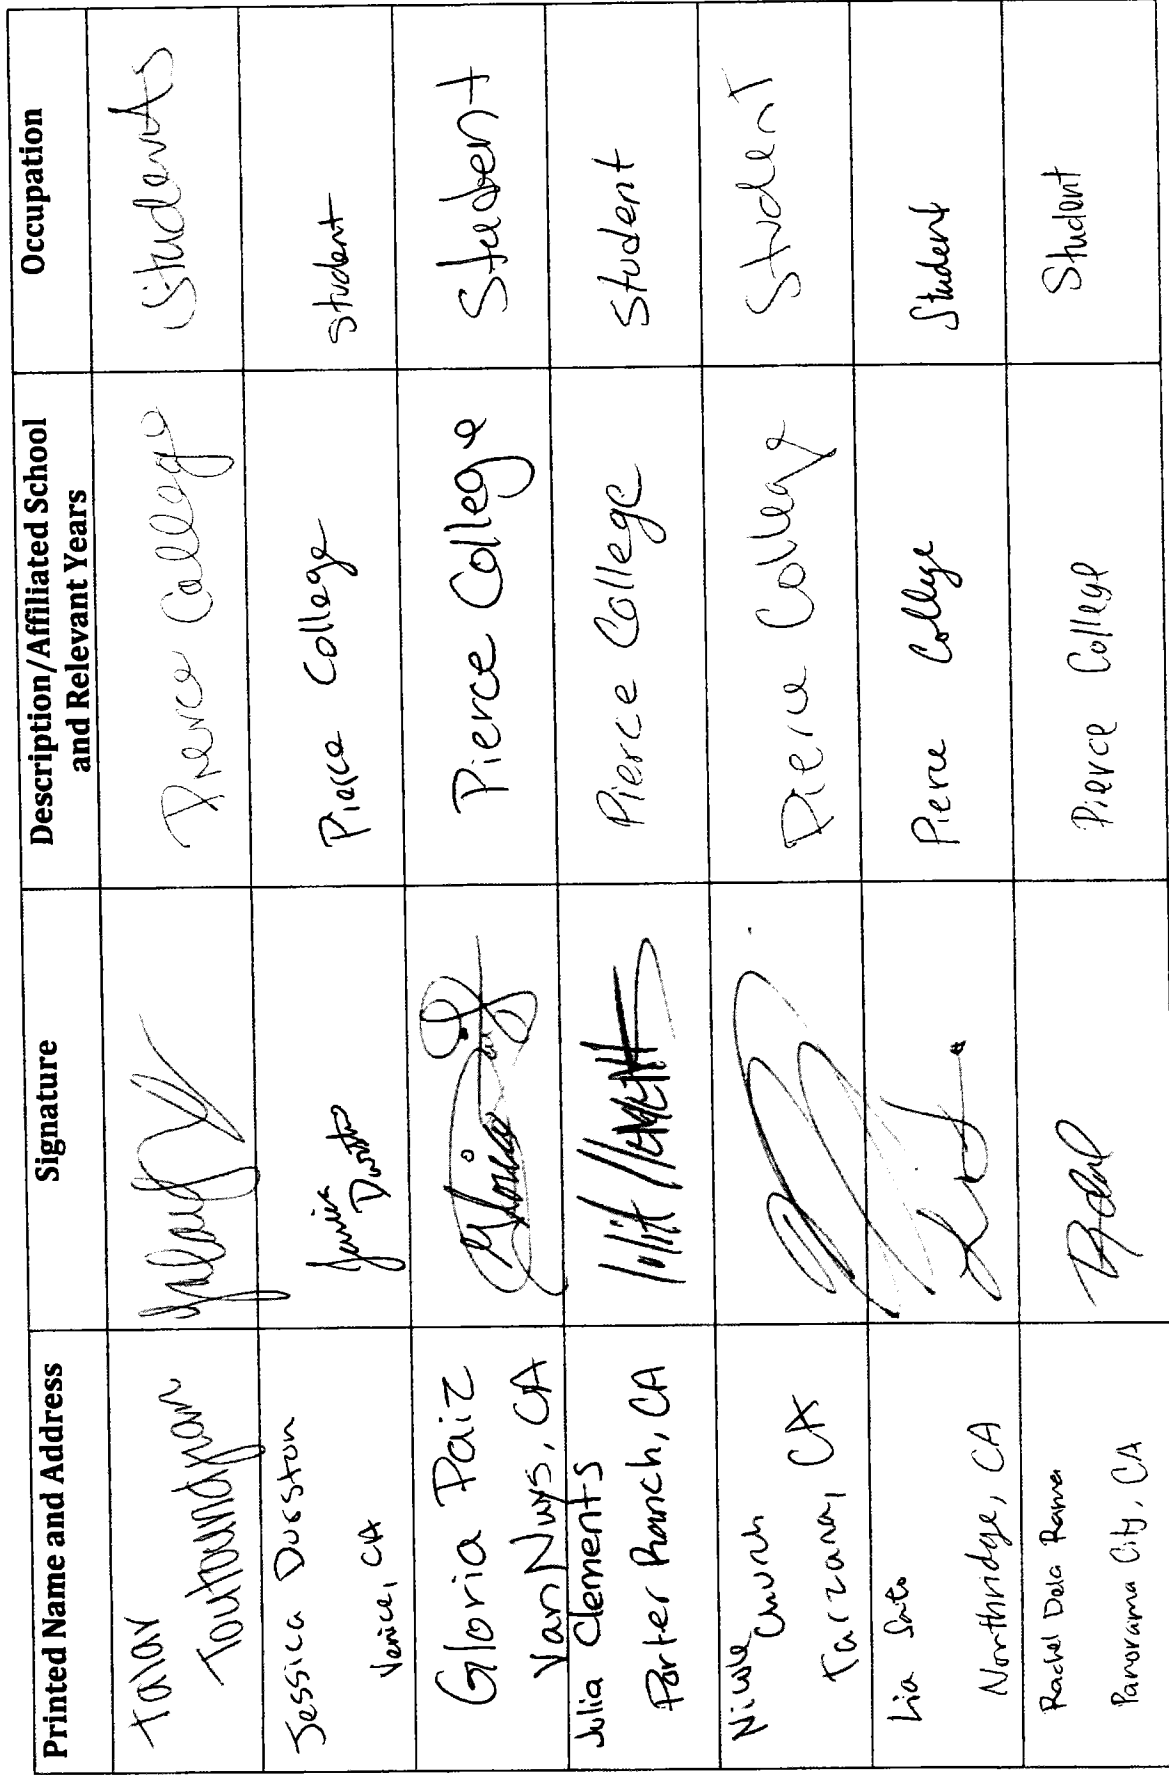 Printed Name and Address Signature Description/Affiliated School and Relevant Years Occupation
Talar
Toutoundjian Pierce College Students
Jessica Durston
Venice, CA Jessica Durston Pierce College student
Gloria Paiz
Van Nuys, CA Gloria Paiz Pierce College Student
Julia Clements
Porter Ranch, CA Pierce College Student
Nicole Church
Tarzana, CA Pierce College Student
Lia Soto
Northridge, CA Pierce College Student
Rachel Dela Rama
Panorama City, CA Pierce College Student